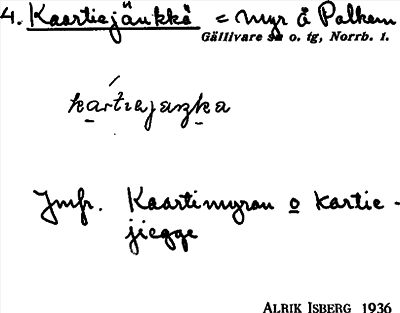 4. Kaartiejäukkå = myr å Palkem
Gällivare sn o. tg, Norrb. l.
Jmfr. Kaartimyran o kartie-
jiegge
ALRIK ISBERG 1936